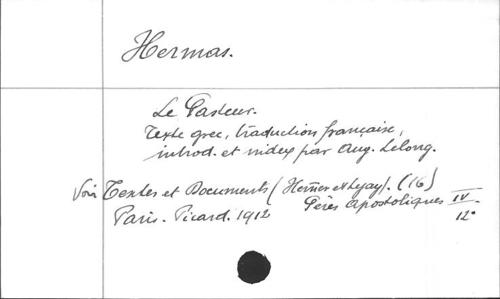 Hermas.
Le Pasteur.
Texte grec, traduction française,
introd. et index par Aug. Lelong.
Voir Textes et Documents (Hemmer et Lejay). (16)
Paris. Picard. 1912 Pères Apostoliques IV
12°